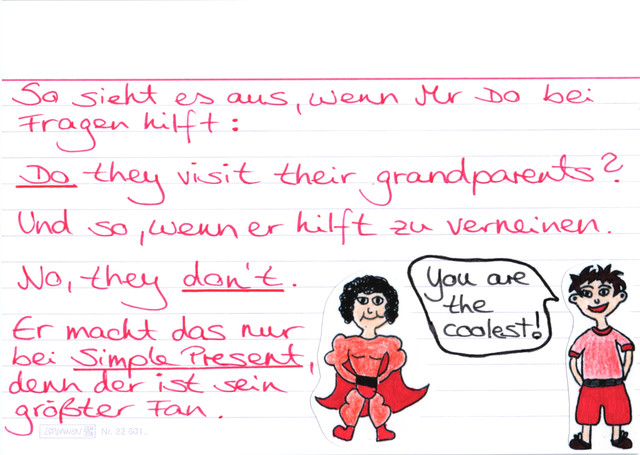 So sieht es aus, wenn Mr Do bei
Fragen hilft:
Do they visit their grandparents?
Und so, wenn er hilft zu verneinen.
No, they don't.
Er macht das nur
bei Simple Present,
denn der ist sein
größter Fan.
You are
the
coolest!